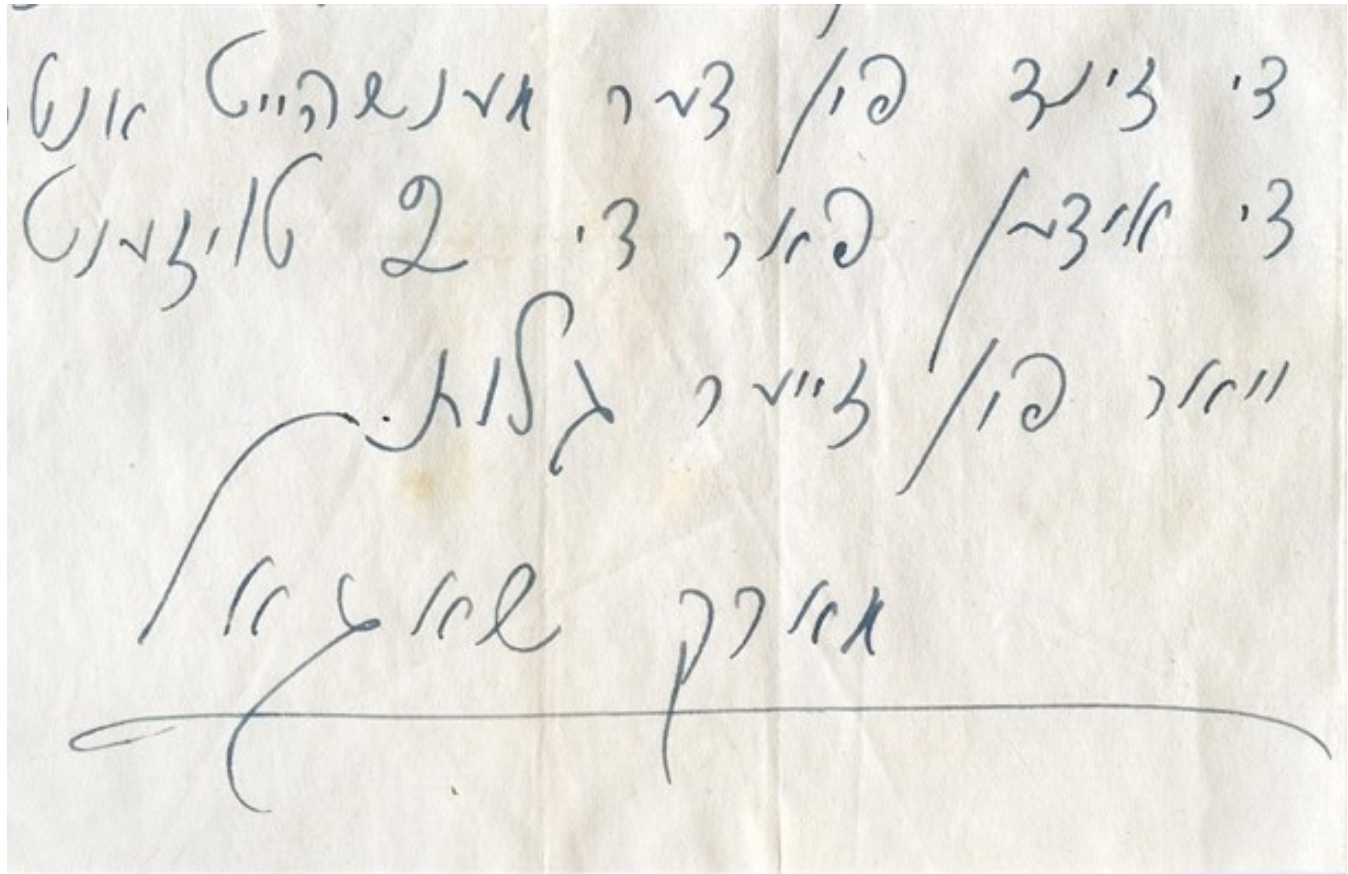 די זינד פון דער מענשהייט אנט
די אידען פאר די 2 טויזענט
יאר פון זייער גלות.
מארק שאגאל